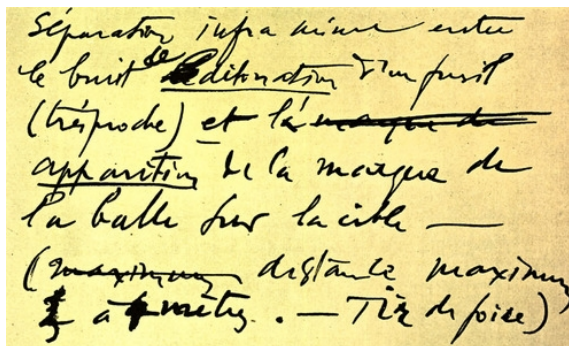 Séparation infra mince entre
le bruit de détonation d'un fusil
(très proche) et l'
apparition de la marque de
la balle sur la cible —
(maximum distance maximum
3 à 4 mètres. — Tir de foire)